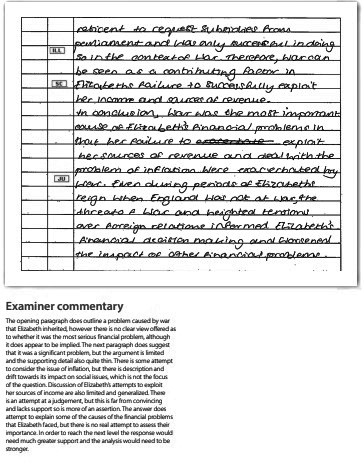 reticent to request subsidies from
parliament and was only successful in doing
so in the context of war. Therefore, war can
be seen as a contributing factor in
Elizabeths failure to successfully exploit
her income and sources of revenue.
In conclusion, war was the most important
cause of Elizabeth's financial problems in
that her failure to exploit
her sources of revenue and deal with the
problem of inflation were exacerbated by
war. Even during periods of Elizabeths
reign when England was not at war, the
threats of war and heighted tensions
over foreign relations informed Elizabeth's
financial decision making and worsened
the impact of other financial problems.
Examiner commentary
The opening paragraph does outline a problem caused by war
that Elizabeth inherited, however there is no clear view offered as
to whether it was the most serious financial problem, although
it does appear to be implied. The next paragraph does suggest
that it was a significant problem, but the argument is limited
and the supporting detail also quite thin. There is some attempt
to consider the issue of inflation, but there is description and
drift towards its impact on social issues, which is not the focus
of the question. Discussion of Elizabeth's attempts to exploit
her sources of income are also limited and generalised. There
is an attempt at a judgement, but this is far from convincing
and lacks support so is more of an assertion. The answer does
attempt to explain some of the causes of the financial problems
that Elizabeth faced, but there is no real attempt to assess their
importance. In order to reach the next level the response would
need much greater support and the analysis would need to be
stronger.